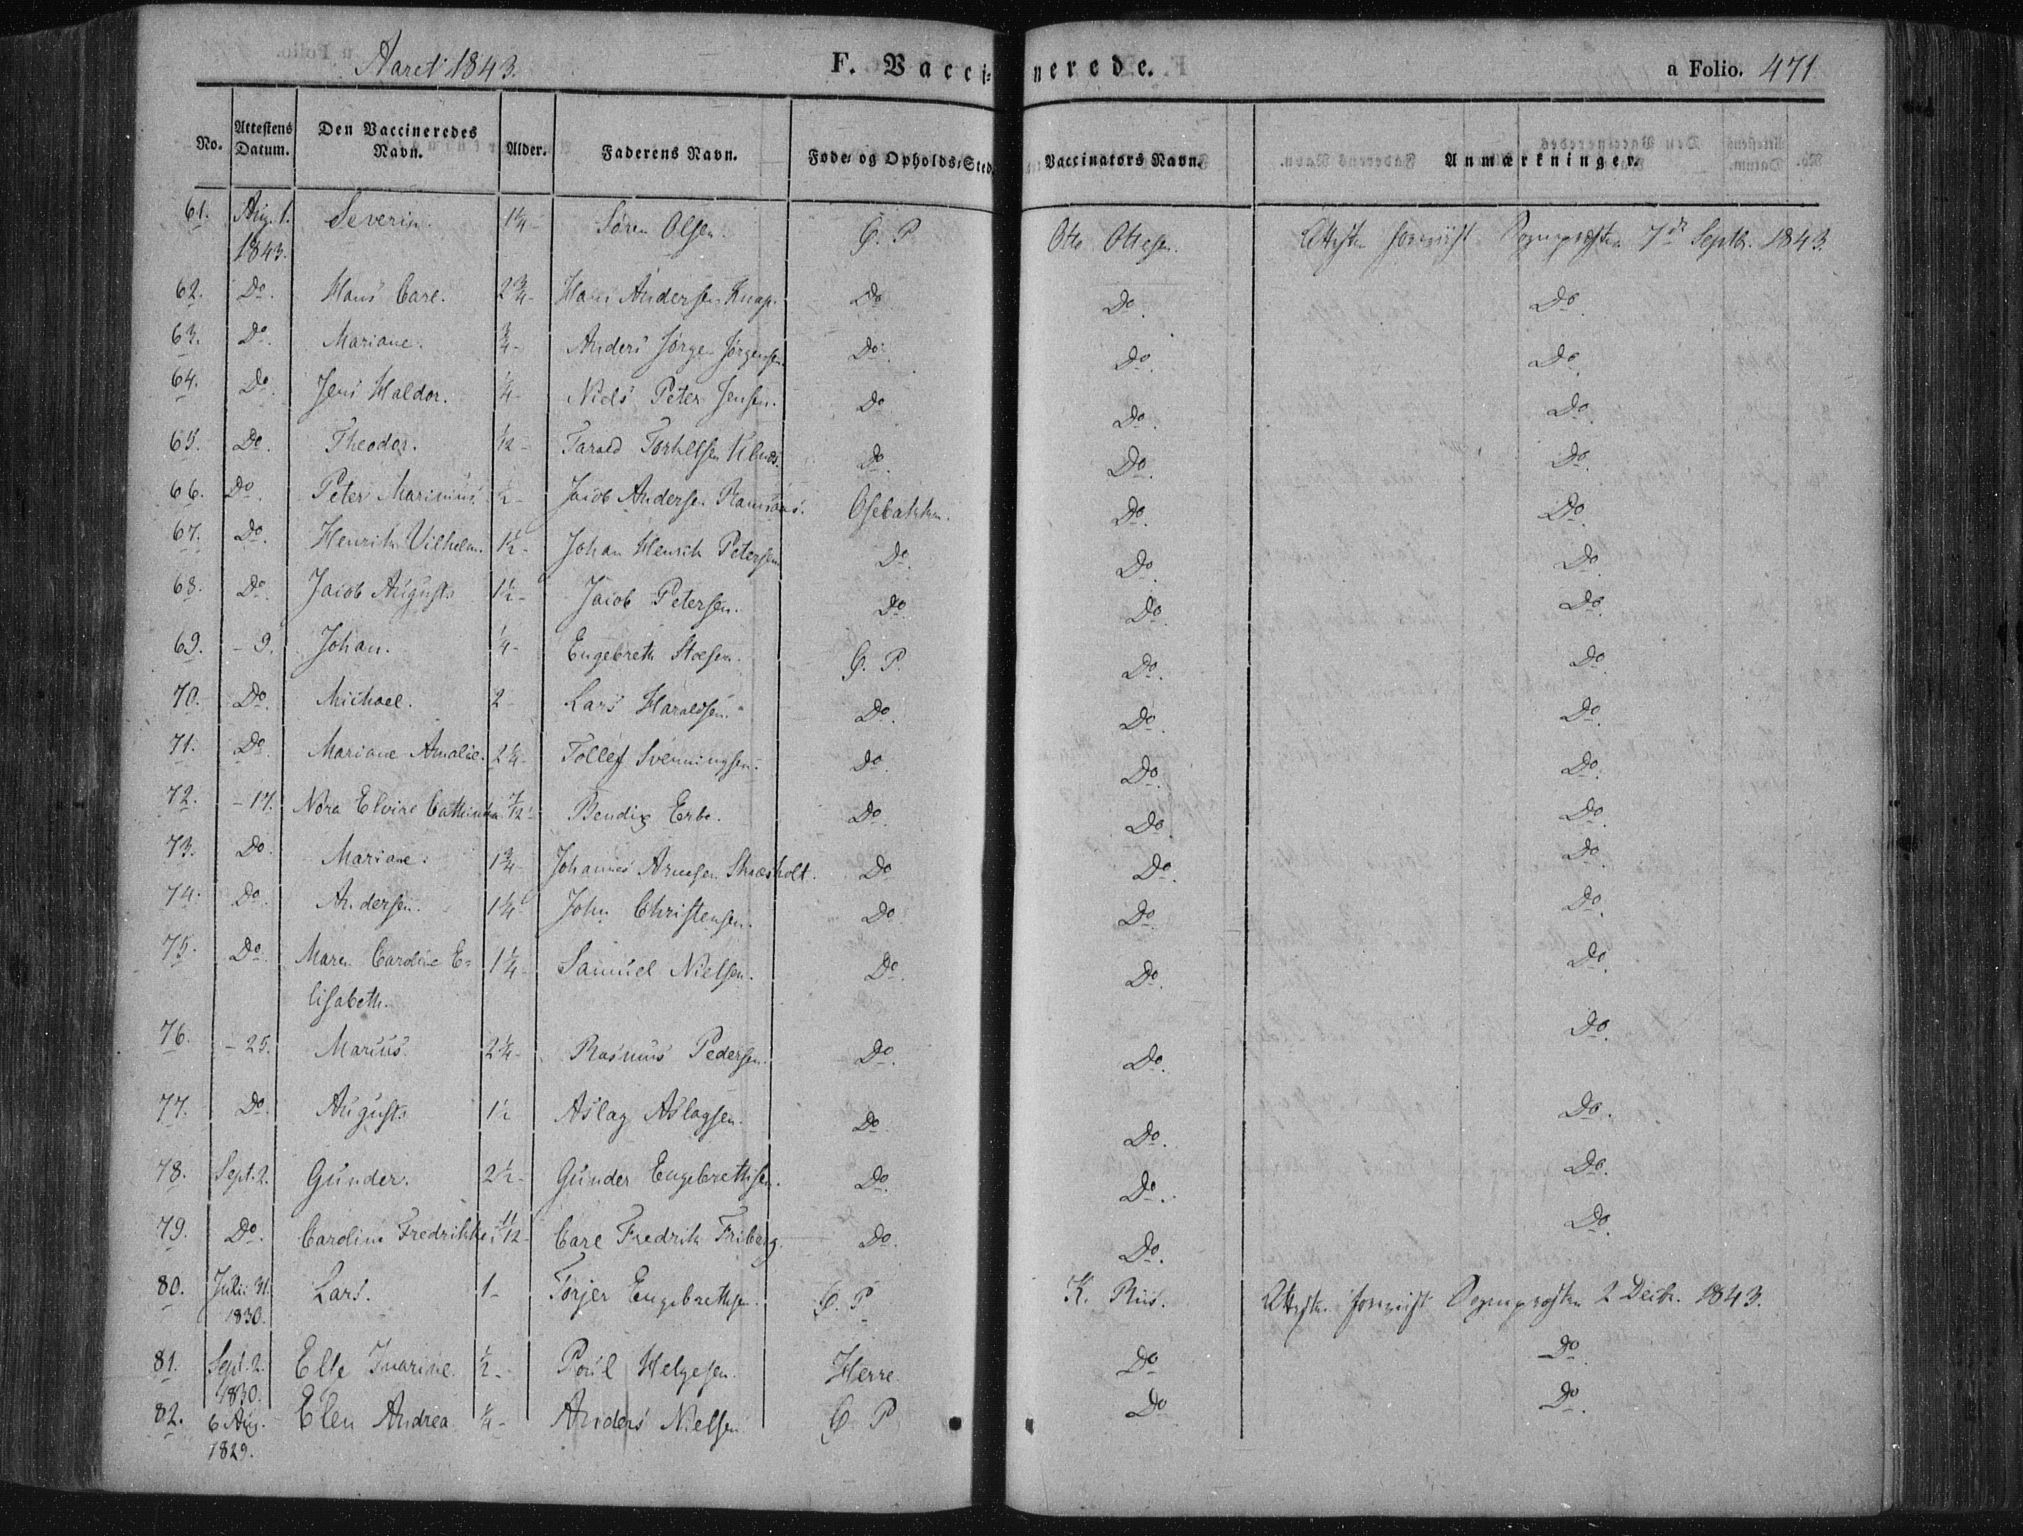 Aaret 1843. F. Vaccinerede. a Folio. 471
No. Attestens Datum. Den Vaccineredes Navn. Alder. Faderens Navn. Føde- og Opholds-Sted. Vaccinators Navn. Anmærkninger.
61. Aug. 1. 1843. Severin. 1¼ Søren Olsen P Otto Ottesen. 7de Septbr. 1843.
62. Do. Hans Carl. 2¾ Hans Andersen Knap. Do Do. Do.
63. Do. Mariane. ¾ Anders Jørgen Jørgensen Do. Do. Do.
64. Do. Jens Haldor. ¼ Niels Peter Jensen. Do Do. Do.
65. Do. Theodor. ½ Tarald Torkelsen Do Do. Do.
66. Do. Peter Marinius. ½ Jacob Andersen Ramsaas. Osebakken. Do. Do.
67. Do. Henrik Vilhelm. 1½ Johan Henrik Petersen Do. Do. Do.
68. Do. Jacob August 1½ Jacob Petersen. Do. Do. Do.
69. – 9. Johan. ¼ Engebreth P. Do. Do
70. Do. Michael. 2 Lars Haraldsen. Do. Do. Do.
71. Do Mariane Amalie. 2¼ Tollef Svenningsen. Do. Do. Do.
72. – 17. Nora Elvire Cathinka 7/12 Bendix Erbo. Do. Do. Do.
73. Do. Mariane. 1¾ Johannes Arnesen Do Do. Do.
74. Do. Andersen. 1¼ John Christensen. Do. Do. Do.
75. Do. Maren Caroline E-
lisabeth. 1¼ Samuel Nielsen. Do. Do. Do.
76. – 25. Marius. 2¼ Rasmus Pedersen. Do. Do. Do.
77. Do. August 1½ Aslag Aslagsen. Do. Do. Do.
78. Sept. 2. Gunder. 2½ Gunder Engebrethsen. Do. Do. Do.
79. Do. Caroline Fredrikke 11/12 Carl Fredrik Friberg. Do. Do. Do.
80. Juli 31. 1830. Lars. 1 Torjer Engebrethsen. P K. Riis. 2 Decbr. 1843.
81. Sept. 2. 1830. Else ½ Poul Helgesen. Herre Do Do.
82. 6 Aug. 1829. Elen Andrea ¼ Anders Nielsen P Do Do.